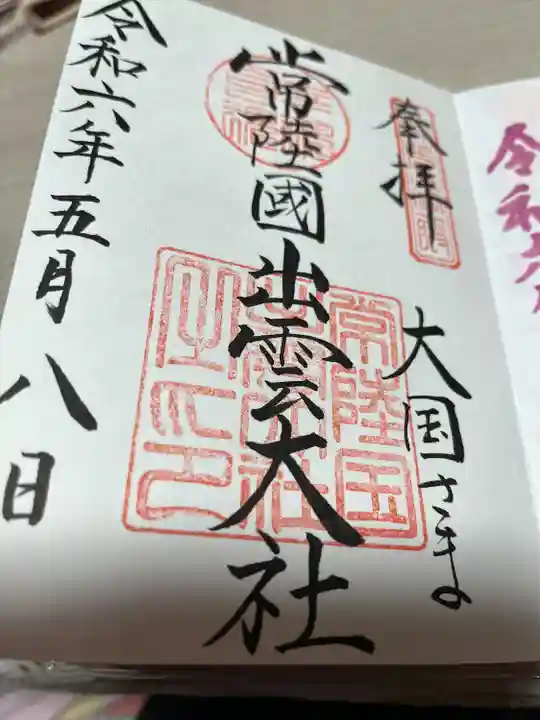 令和六
奉拝
大国さま
常陸國出雲大社
常陸国
出雲大社
之印
令和六年五月八日